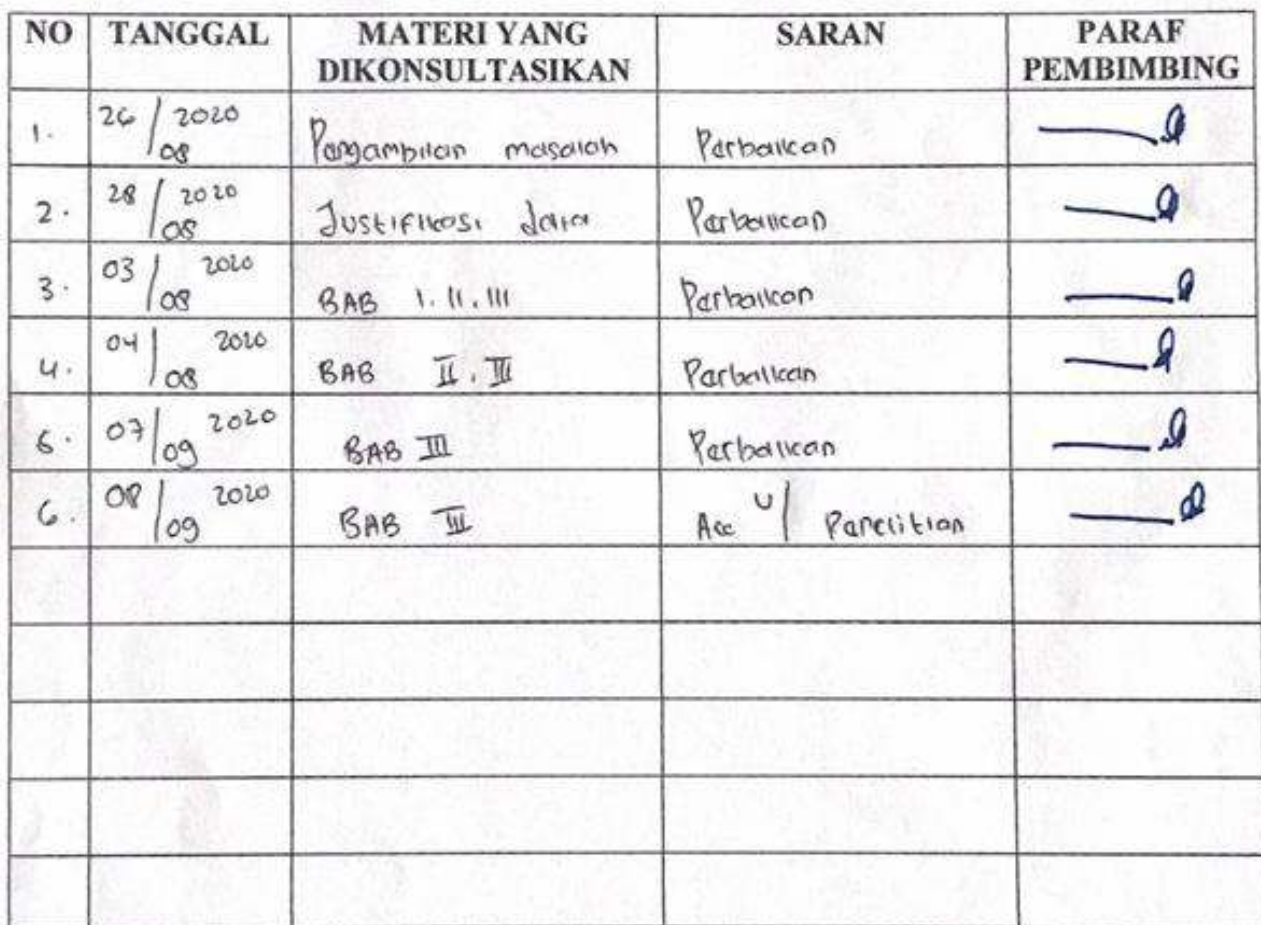 NO TANGGAL MATERI YANG DIKONSULTASIKAN SARAN PARAF PEMBIMBING
1. 26/08 2020 Pengambilan masalah Perbaikan
2. 28/08 2020 Justifikasi data Perbaikan
3. 03/08 2020 BAB I. II. III Perbaikan
4. 04/08 2020 BAB II. III Perbaikan
5. 07/09 2020 BAB III Perbaikan
6. 08/09 2020 BAB III Acc U/ Penelitian